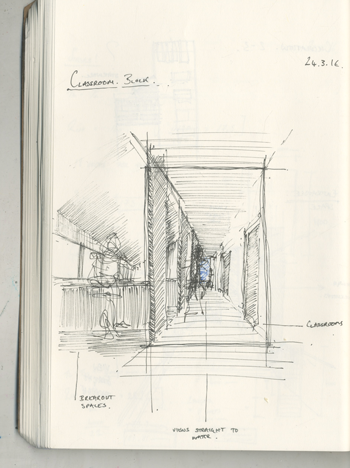 24.3.16.
CLASSROOM BLOCK.
CLASSROOMS
BREAKOUT
SPACES.
VIEWS STRAIGHT TO
WATER.